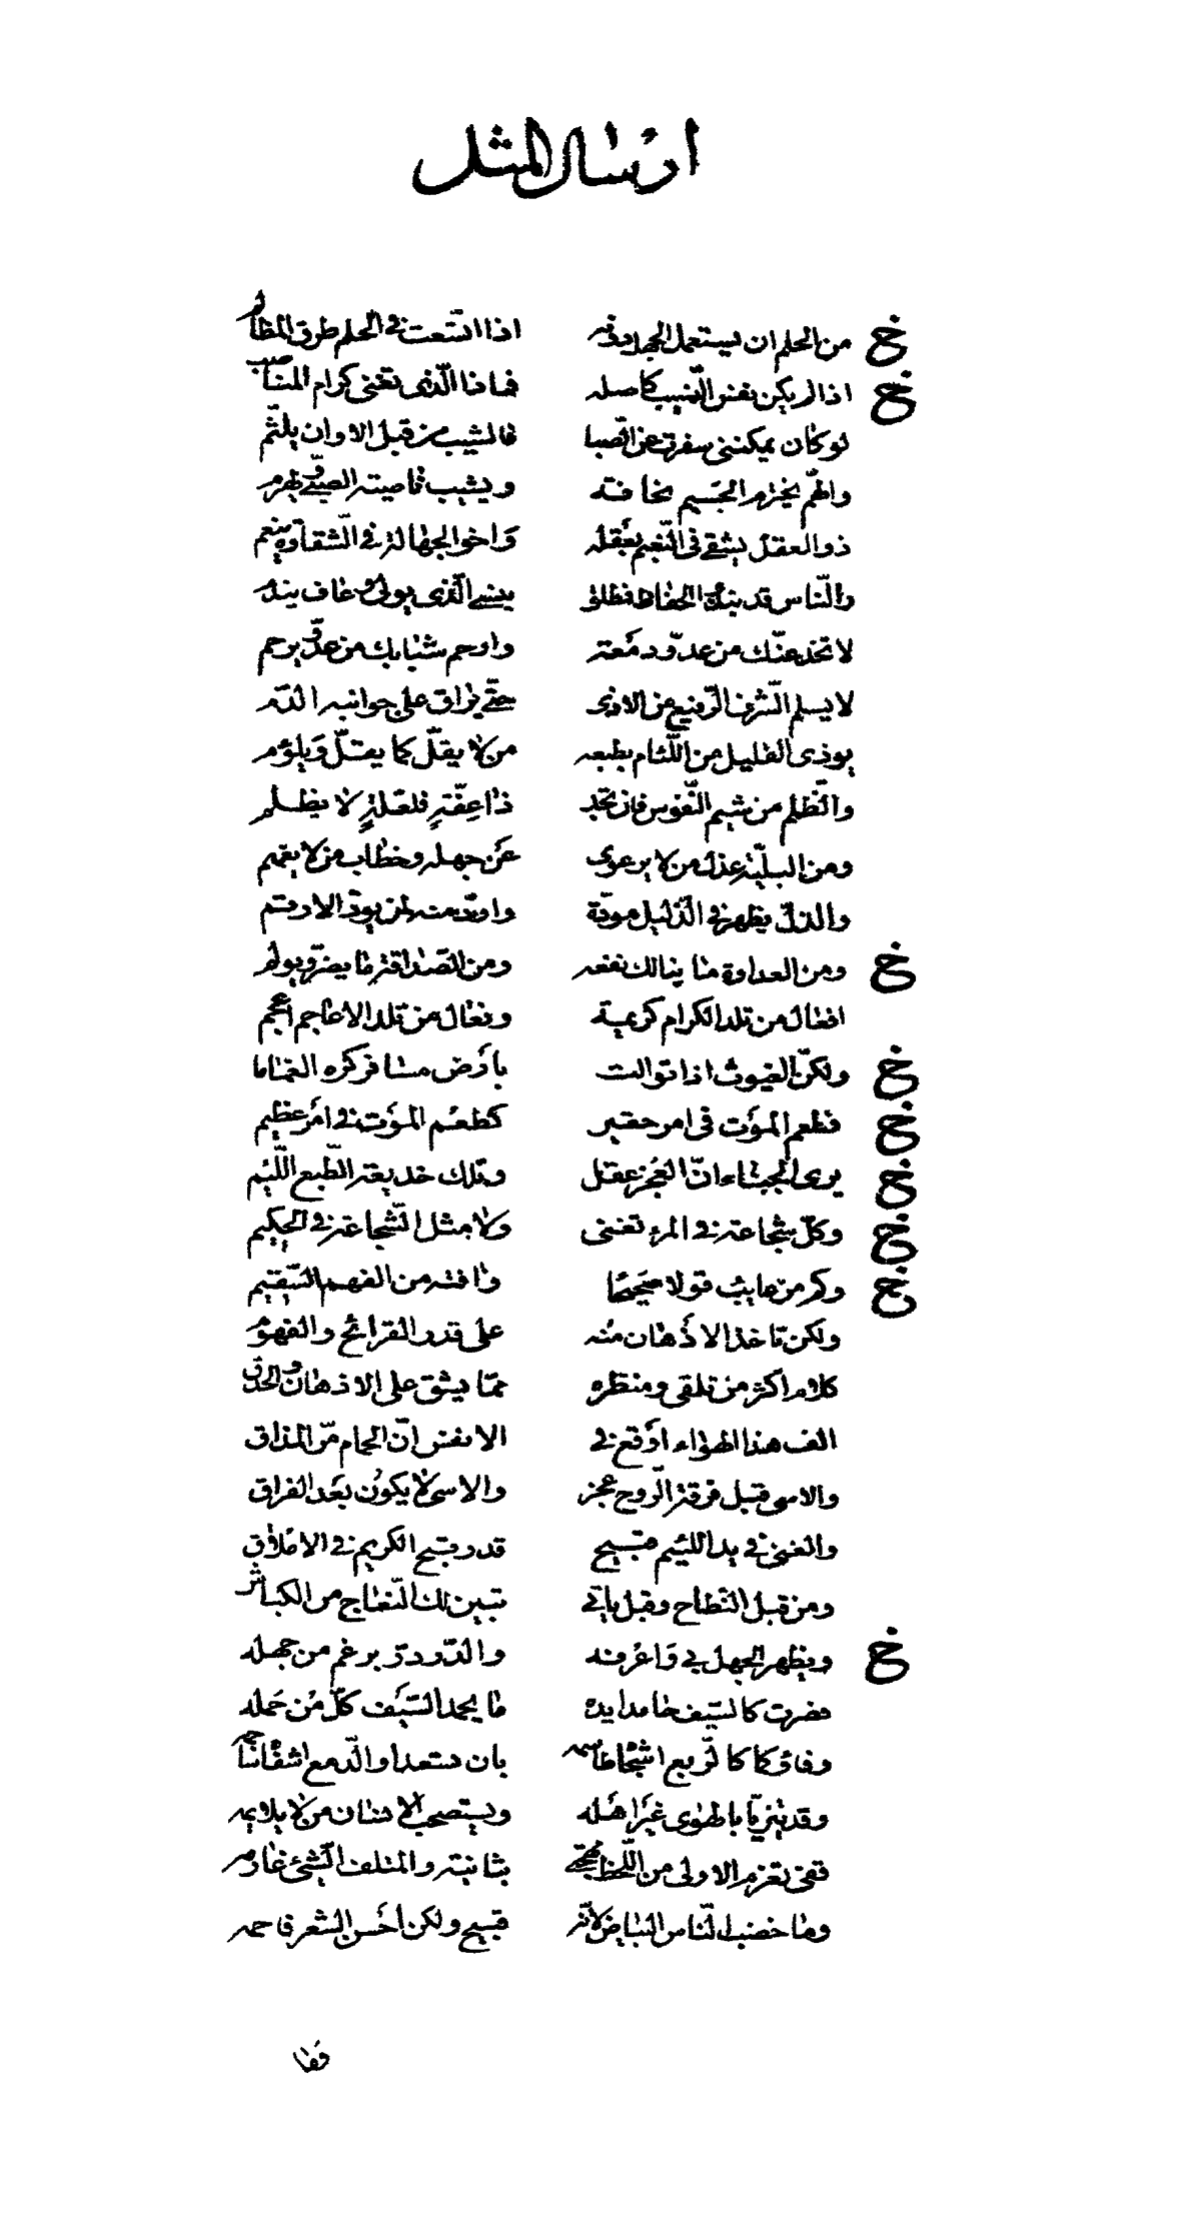 ارسال المثل
خ من الحلم ان يستعمل الجهل دونه اذا اتسعت في الحلم طرق المظالم
خ اذا لم يكن نفس النسيب كاصله فماذا الّذى تغنى كرام المناصب
لو كان يمكننى سفرت عن الصبا فالشيب من قبل الاوان يلثّم
والهمّ يخترم الجسيم مخافة ويشيب ناصية الصبّي ويهرم
ذو العقل يشقى فى النّعيم بعقله وَاخو الجهالة فى الشّقاوة ينعم
والنّاس قد نبذوا الحفاظ فمطلق ينسى الّذى يولى وعاف يندم
لا تخدعنّك من عدوّ دمعته وارحم شبابك من عدوّ يرحم
لا يسلم الشّرف الرّفيع من الاذى حتّى يراق على جوانبه الدّم
يوذى القليل من اللّئام بطبعه من لا يقلّ كما يقلّ وَيلؤم
والظّلم من شيم النّفوس فان تجد ذا عِفّةٍ فلعلّةٍ لا يظلم
ومن البليّة عذل من لا يرعوى عَن جهله وخطاب من لا يفهم
والذلّ يظهر فى الذّليل مودّة واودّ منه لمن يودّ الارقم
خ ومن العداوة ما ينالك نفعه ومن الصّداقة ما يضرّ ويولم
افعال من تلد الكرام كريمة وفعال من تلد الاعاجم اعجم
خ ولكنّ الغيوث اذا توالت بارض مسافر كره الغماما
خ فطعم الموت فى امر حقير كطعم الموت فى امر عظيم
خ يرى الجبناء انّ العجز عقل وتلك خديعة الطّبع اللّئيم
خ وكلّ شجاعة فى المرء تغنى ولا مثل الشّجاعة فى الحكيم
خ وكم من عايب قولا صحيحًا وافته من الفهم السّقيم
ولكن تاخذ الاذهان منه على قدر القرائح والفهوم
كلام اكثر من تلقى ومنظره ممّا يشق على الاذهان والحدق
الف هذا الهواء اوقع فى الانفس انّ الحمام مرّ المذاق
والاسى قبل فرقة الرّوح عجز والاسى لا يكون بعد الفراق
والغنى فى يد اللئيم قبيح قدر قبح الكريم فى الاملاق
ومن قبل النّطاح وقبل ياتى تبين لك النّعاج من الكباش
خ ويظهر الجهل بى واعرفه والدّر درّ برغم من جهله
فصرت كالسّيف حامدا يده ما يحمد السّيف كلّ من حمله
وفاؤكما كالرّبع اشجاه طاسمه بان تسعدا والدّمع اشفاه ساجمه
وقد يتزيّا بالهوى غير اهله ويستصحب الانسان من لا يلايمه
قفى تغرم الاولى من اللّحظ مهجتى بثانية والمتلف الشّئ غارمه
وما خضب النّاس البياض لانّه قبيح ولكن احسن الشعر فاحمه